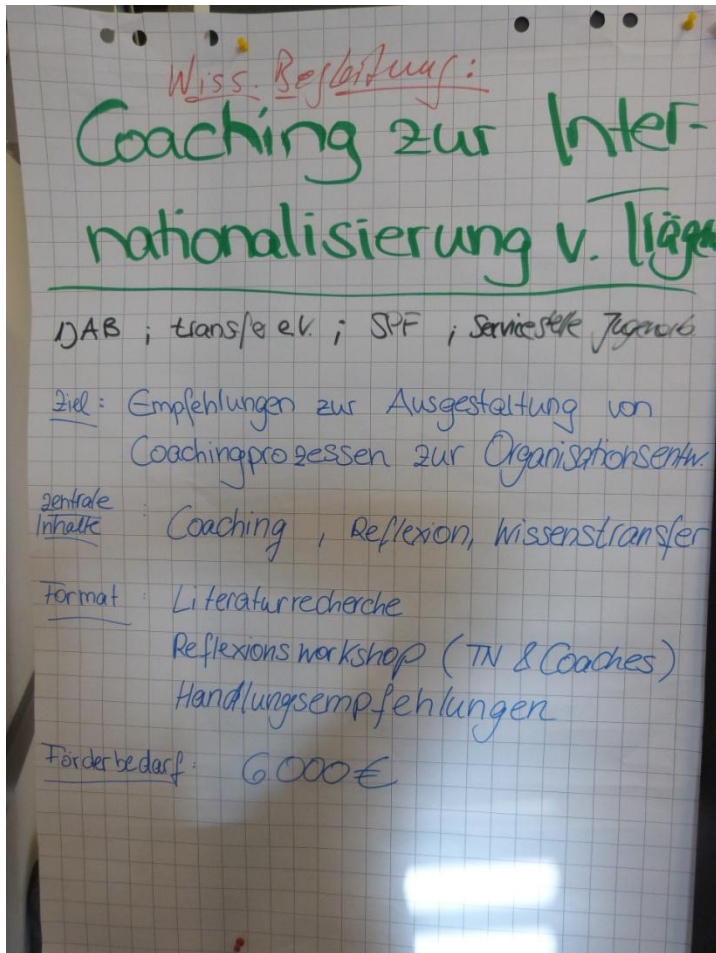 Wiss. Begleitung:
Coaching zur Inter-
nationalisierung v. Träge
DAB ; transfer e.V. ; SPF ; Servicestelle Jugendarb.
Ziel: Empfehlungen zur Ausgestaltung von
Coachingprozessen zur Organisationsentw.
zentrale
Inhalte : Coaching, Reflexion, Wissenstransfer
Format : Literaturrecherche
Reflexionsworkshop (TN & Coaches)
Handlungsempfehlungen
Förderbedarf: 6.000€